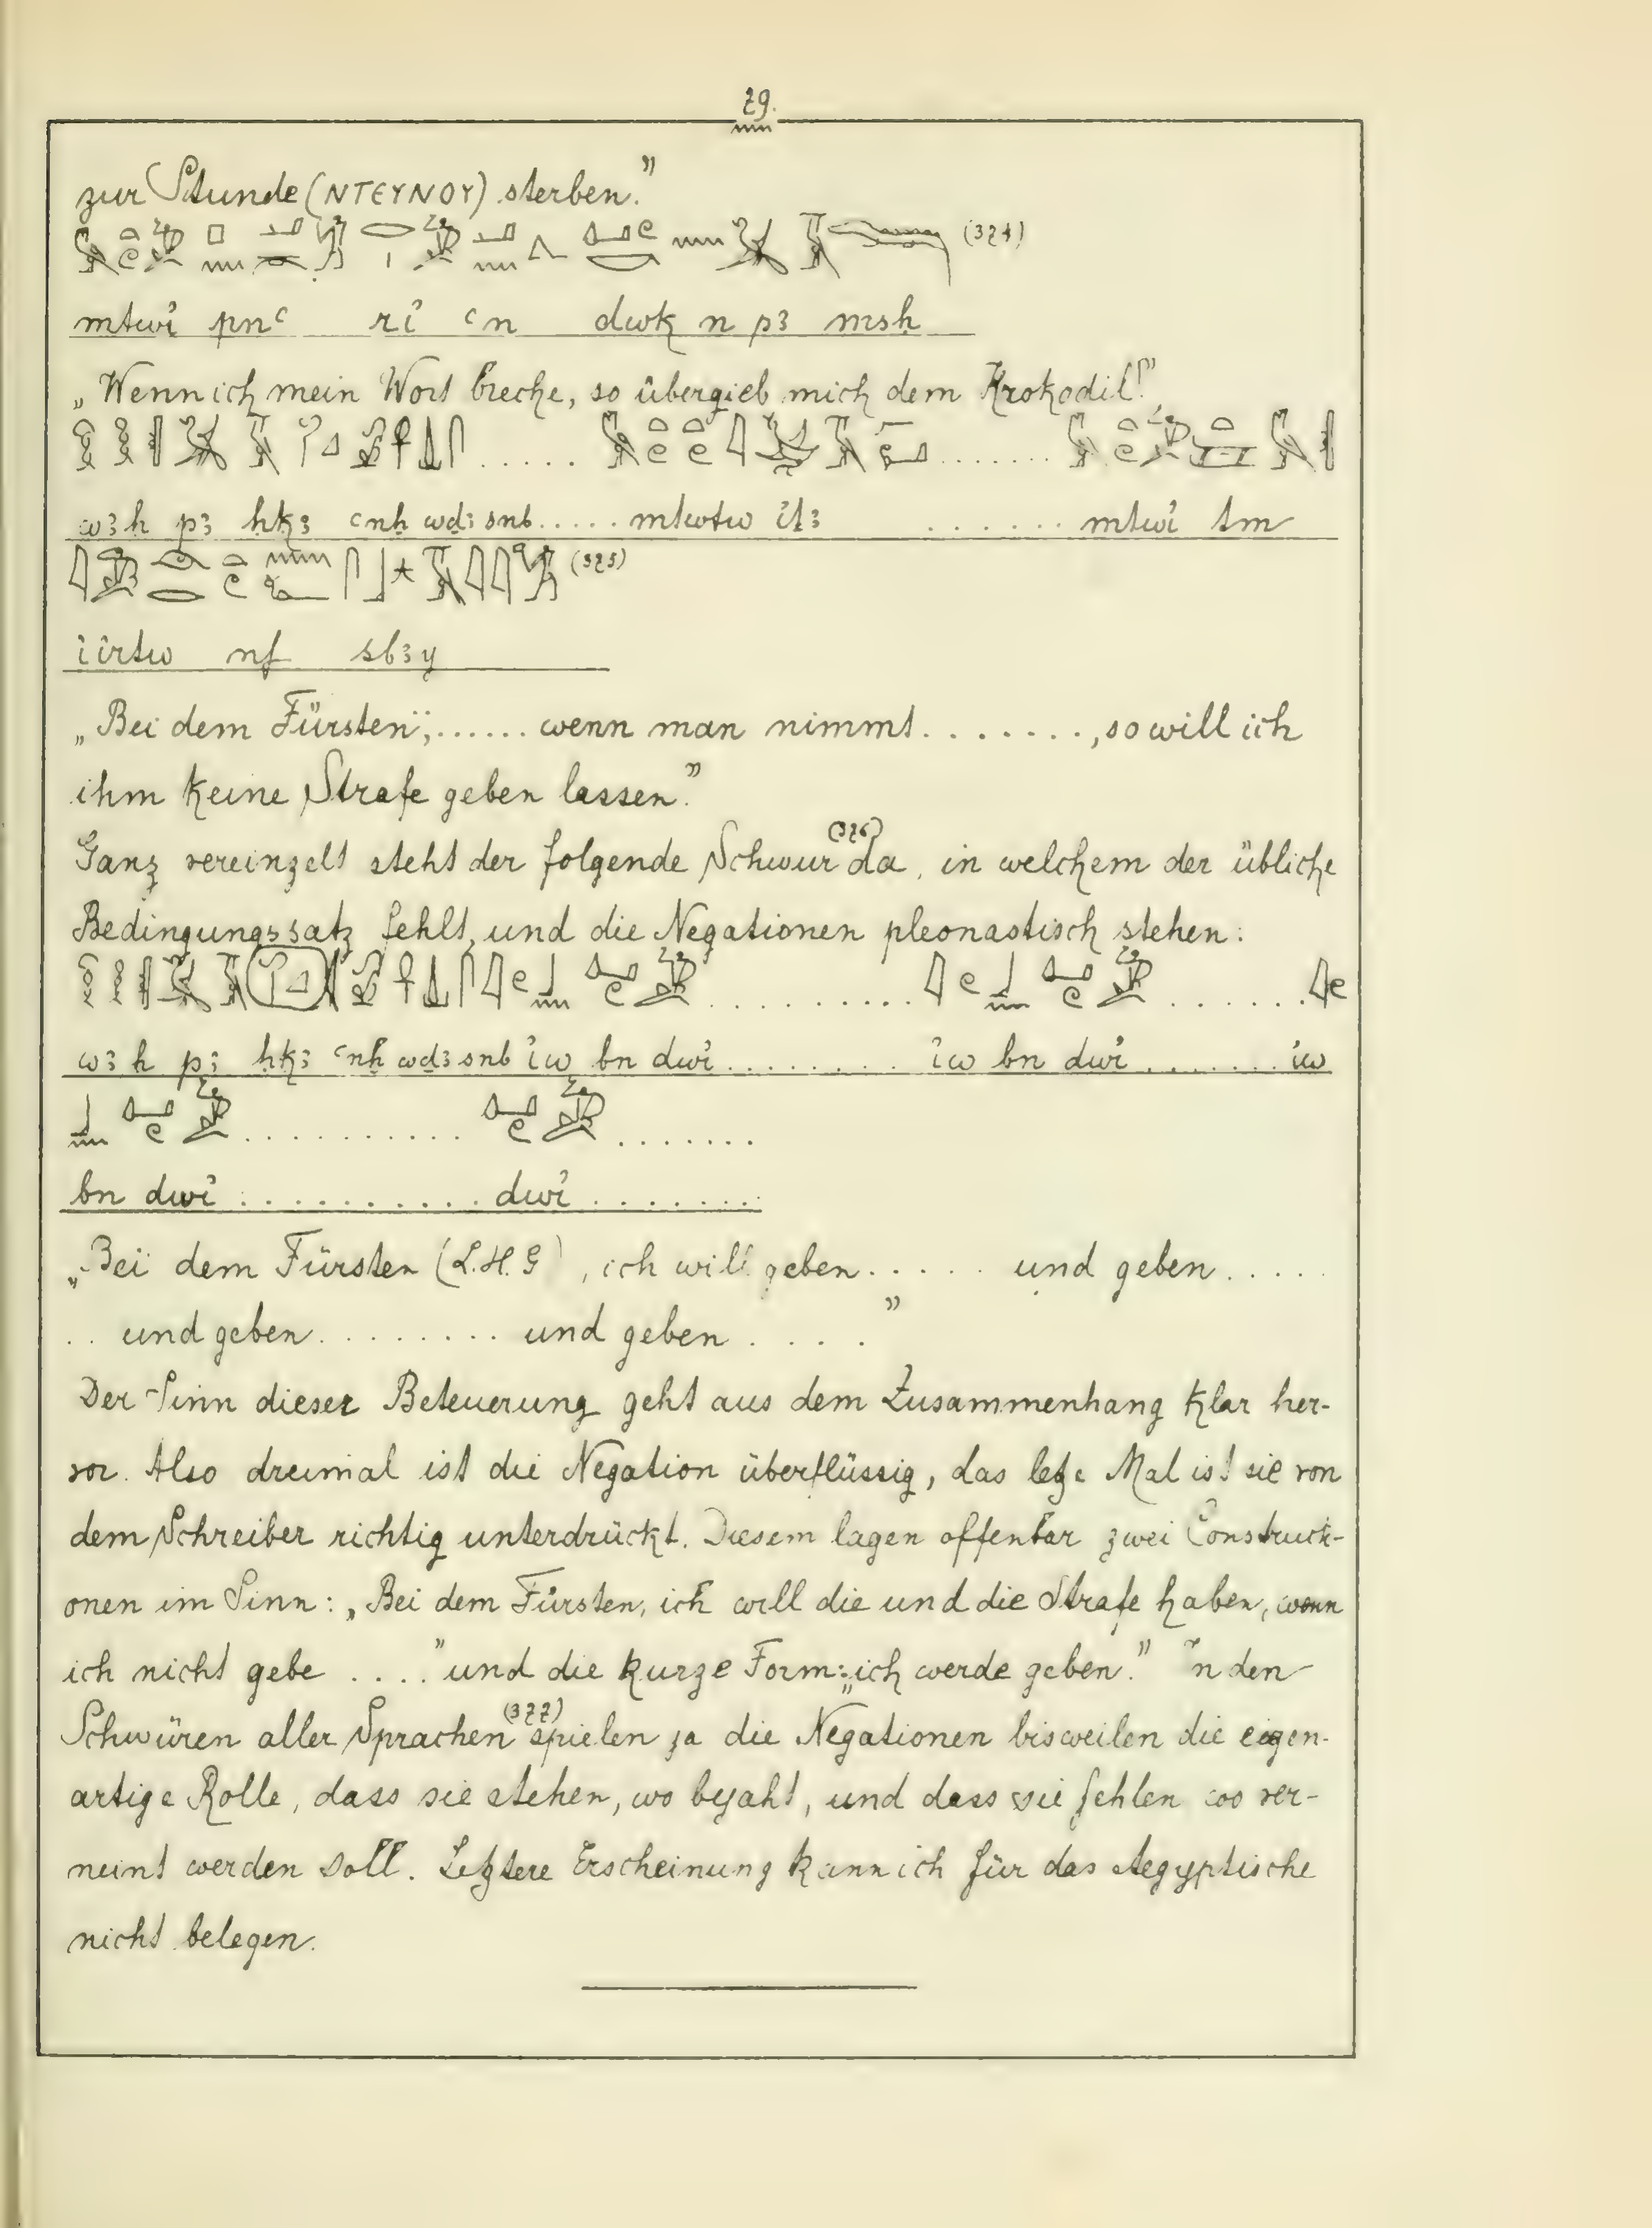 79.
zur Stunde (ΝΤΕΥΝΟΥ) sterben."
(324)
mtwỉ pnʿ rỉ ʿn dwk n pꜣ msḥ
„Wenn ich mein Wort breche, so übergieb mich dem Krokodil!"
. . . . . . . . . . . .
wꜣḥ pꜣ ḥḳꜣ ʿnḫ wḏꜣ snb ..... mtwtw ỉṯꜣ ....... mtwỉ tm
(325)
ỉỉrtw nf sbꜣy
„Bei dem Fürsten, ...... wenn man nimmt ........, so will ich
ihm keine Strafe geben lassen."
Ganz vereinzelt steht der folgende Schwur (326) da, in welchem der übliche
Bedingungssatz fehlt, und die Negationen pleonastisch stehen:
wꜣḥ pꜣ ḥḳꜣ ʿnḫ wḏꜣ snb ỉw bn dwỉ ......... ỉw bn dwỉ ....... ỉw
bn dwỉ ........... dwỉ ........
„Bei dem Fürsten (L.H.G), ich will geben ..... und geben .....
.. und geben ........ und geben ...."
Der Sinn dieser Beteuerung geht aus dem Zusammenhang klar her-
vor. Also dreimal ist die Negation überflüssig, das letze Mal ist sie von
dem Schreiber richtig unterdrückt. Diesem lagen offenbar zwei Construck-
onen im Sinn: „Bei dem Fürsten, ich will die und die Strafe haben, wenn
ich nicht gebe ...." und die kurze Form: „ich werde geben." In den
Schwüren aller Sprachen (377) spielen ja die Negationen bisweilen die eigen-
artige Rolle, dass sie stehen, wo bejaht, und dass sie fehlen wo ver-
neint werden soll. Letztere Erscheinung kann ich für das Aegyptische
nicht belegen.